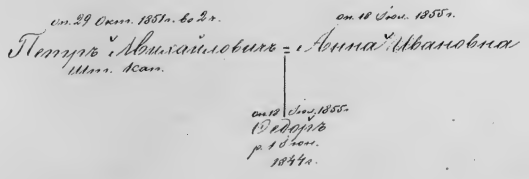 оп. 29 Окт. 1851 г. во 2 ч. оп. 18 Іюл. 1855 г.
Петръ Михайловичъ = Анна Ивановна
Шт. Кап.
оп. 18 Іюл. 1855 г.
Ѳедоръ
р. 1 Іюн.
1844 г.